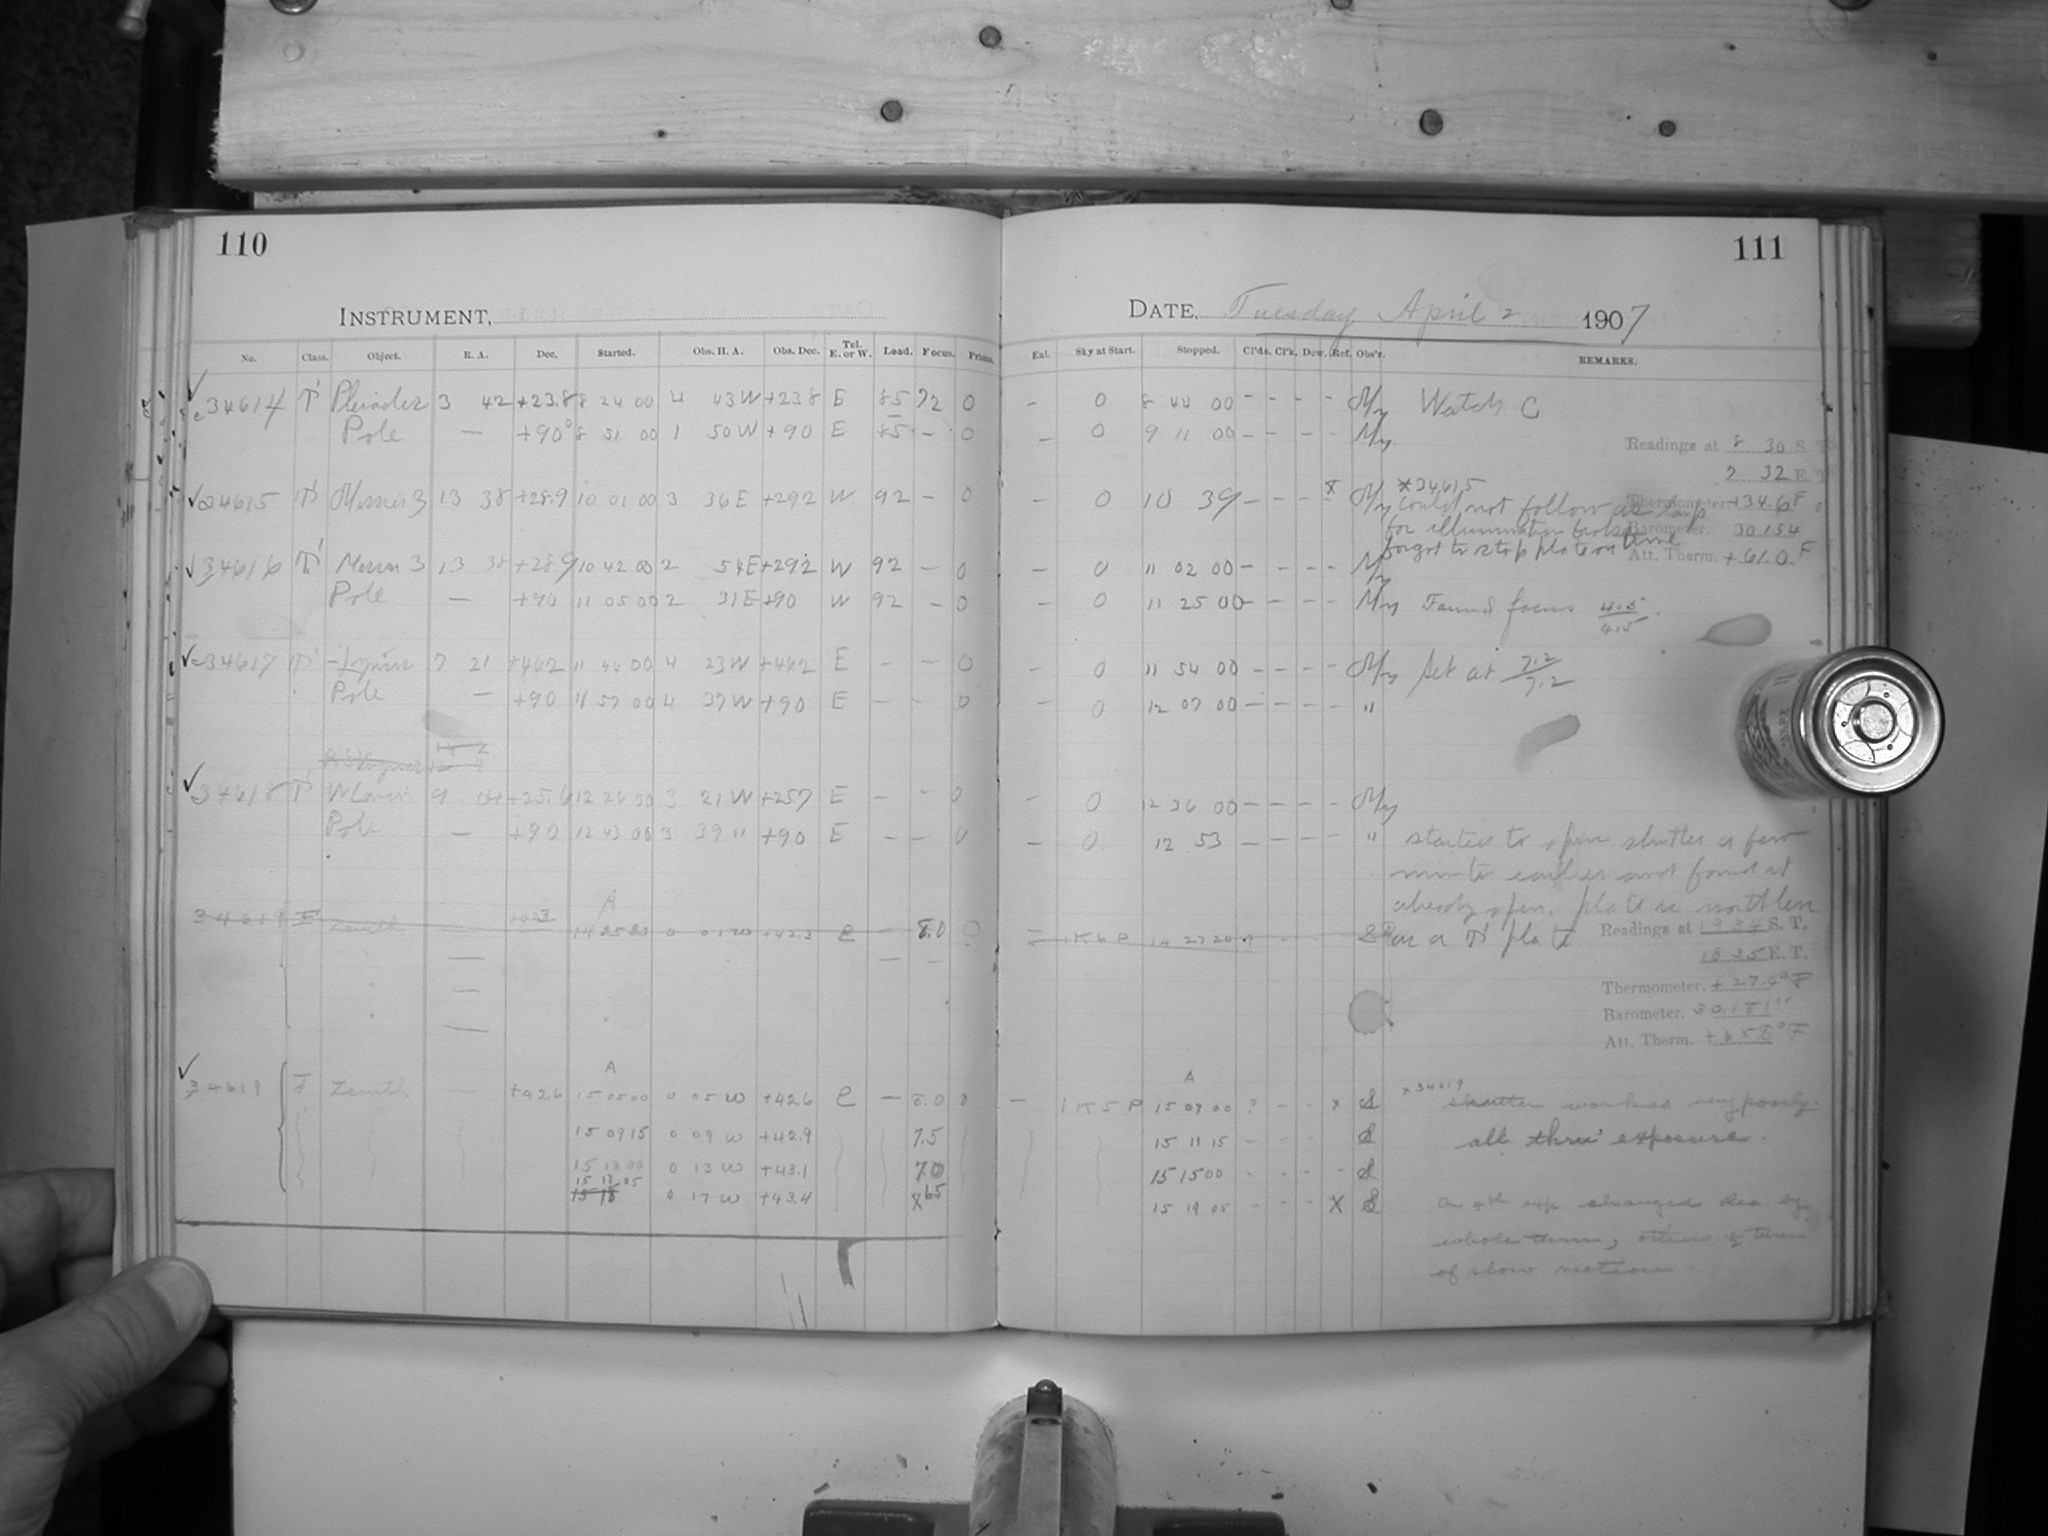 110
111
INSTRUMENT,
DATE, Tuesday April 2 1907
No. Class. Object. R. A. Dec. Started. Obs. H. A. Obs. Dec. Tel. E. or W. Load. Focus. Prisms.
Eul. Sky at Start. Stopped. Cl'ds. Cl'k. Dew. Ref. Obs'r. REMARKS.
34614 Pleiades 3 42 +23.8 8 24 00 4 43 W +23 8 E 85 72 0
– 0 8 44 00 – – – – My Watch C
Pole — +90° 8 51 00 1 50 W +90 E 85 – 0
– 0 9 11 00 – – – – My
Readings at 8 30 S. T.
7 32 E. T.
34615 Messier 3 13 38 +28.9 10 01 00 3 36 E +29 2 W 92 – 0
– 0 10 39 – – – x My *34615
Could not follow as lamp
Thermometer. +34.6 F
for illumination broke
Barometer. 30.154
forgot to stop plate on time
Att. Therm. +61.0 F
34616 Messier 3 13 38 +28.9 10 42 00 2 54 E +29 2 W 92 – 0
– 0 11 02 00 – – – – My
Pole — +90 11 05 00 2 31 E +90 W 92 – 0
– 0 11 25 00 – – – – My Found focus 4.5/4.5
34617 7 21 +46 2 11 44 00 4 23 W +46 2 E – – 0
– 0 11 54 00 – – – – My Set at 7.2/7.2
Pole — +90 11 57 00 4 37 W +90 E – – 0
– 0 12 07 00 – – – – "
34618 9 04 +25.6 12 26 00 3 21 W +25 7 E – – 0
– 0 12 36 00 – – – – My
Pole — +90 12 43 00 3 39 " +90 E – – 0
– 0 12 53 – – – – " started to open shutter a few
minutes earlier and found it
already open. plate is worthless
A
34619 Zenith 0 01 W +42.3 E – 8.0 0
S as a plate
Readings at 19 34 S. T.
18 35 E. T.
Thermometer. +27.9° F
Barometer. 30.181"
Att. Therm. +65.8° F
A
A
34619 Zenith — +42.6 15 05 00 0 05 W +42.6 E – 8.0 0
– 1K5P 15 07 00 ? – – x S x 34619 Shutter worked very poorly
15 09 15 0 09 W +42.9 7.5
15 11 15 – – – S all thru' exposure.
15 13 00 0 13 W +43.1 7.0
15 15 00 – – – S
15 17 05
15 18 0 17 W +43.4 6.5
15 19 05 – – – X S On 4th exp. changed Dec by
whole turn, others ½ turn
of slow motion.